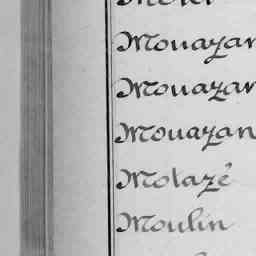 Mouazan
Mouazan
Mouazan
Motazé
Moulin